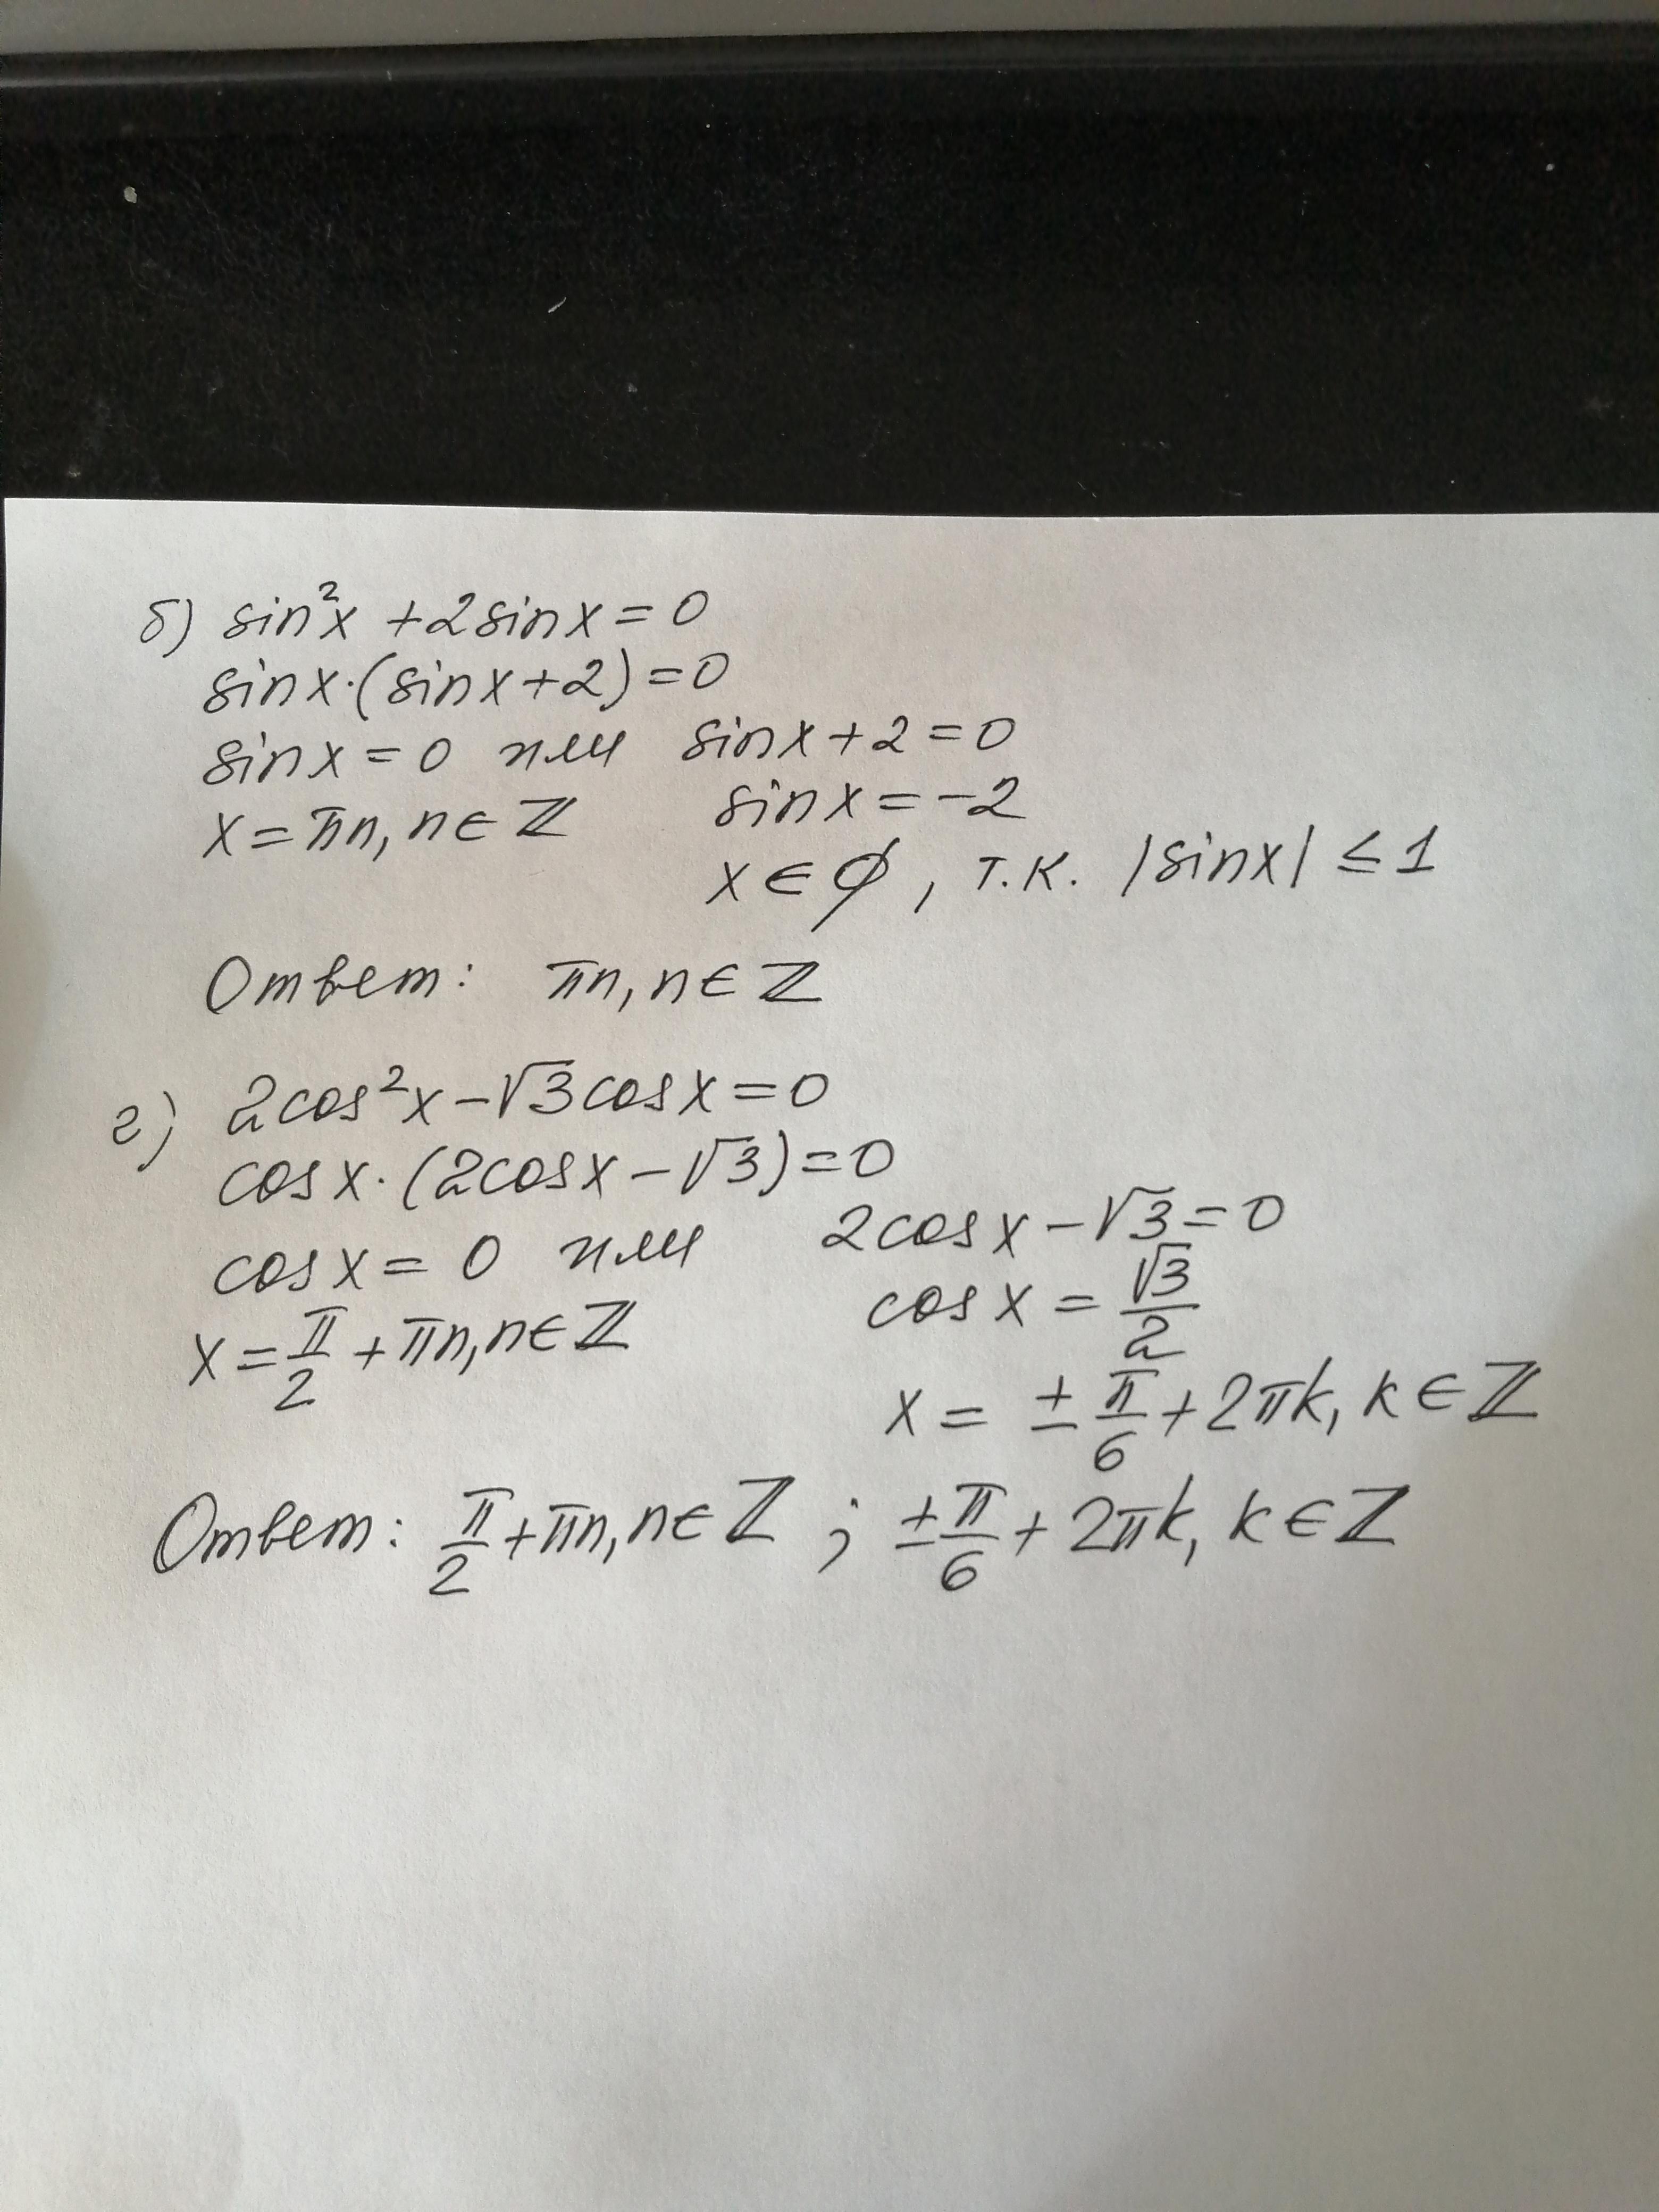 б) sin²x + 2sinx = 0
sinx·(sinx+2) = 0
sinx = 0 или sinx + 2 = 0
x = πn, n ∈ ℤ sinx = -2
x ∈ ∅, т.к. |sinx| ≤ 1
Ответ: πn, n ∈ ℤ
г) 2cos²x - √3cosx = 0
cosx·(2cosx - √3) = 0
cosx = 0 или 2cosx - √3 = 0
cosx = √3/2
x = π/2 + πn, n ∈ ℤ
x = ± π/6 + 2πk, k ∈ ℤ
Ответ: π/2 + πn, n ∈ ℤ ; ± π/6 + 2πk, k ∈ ℤ